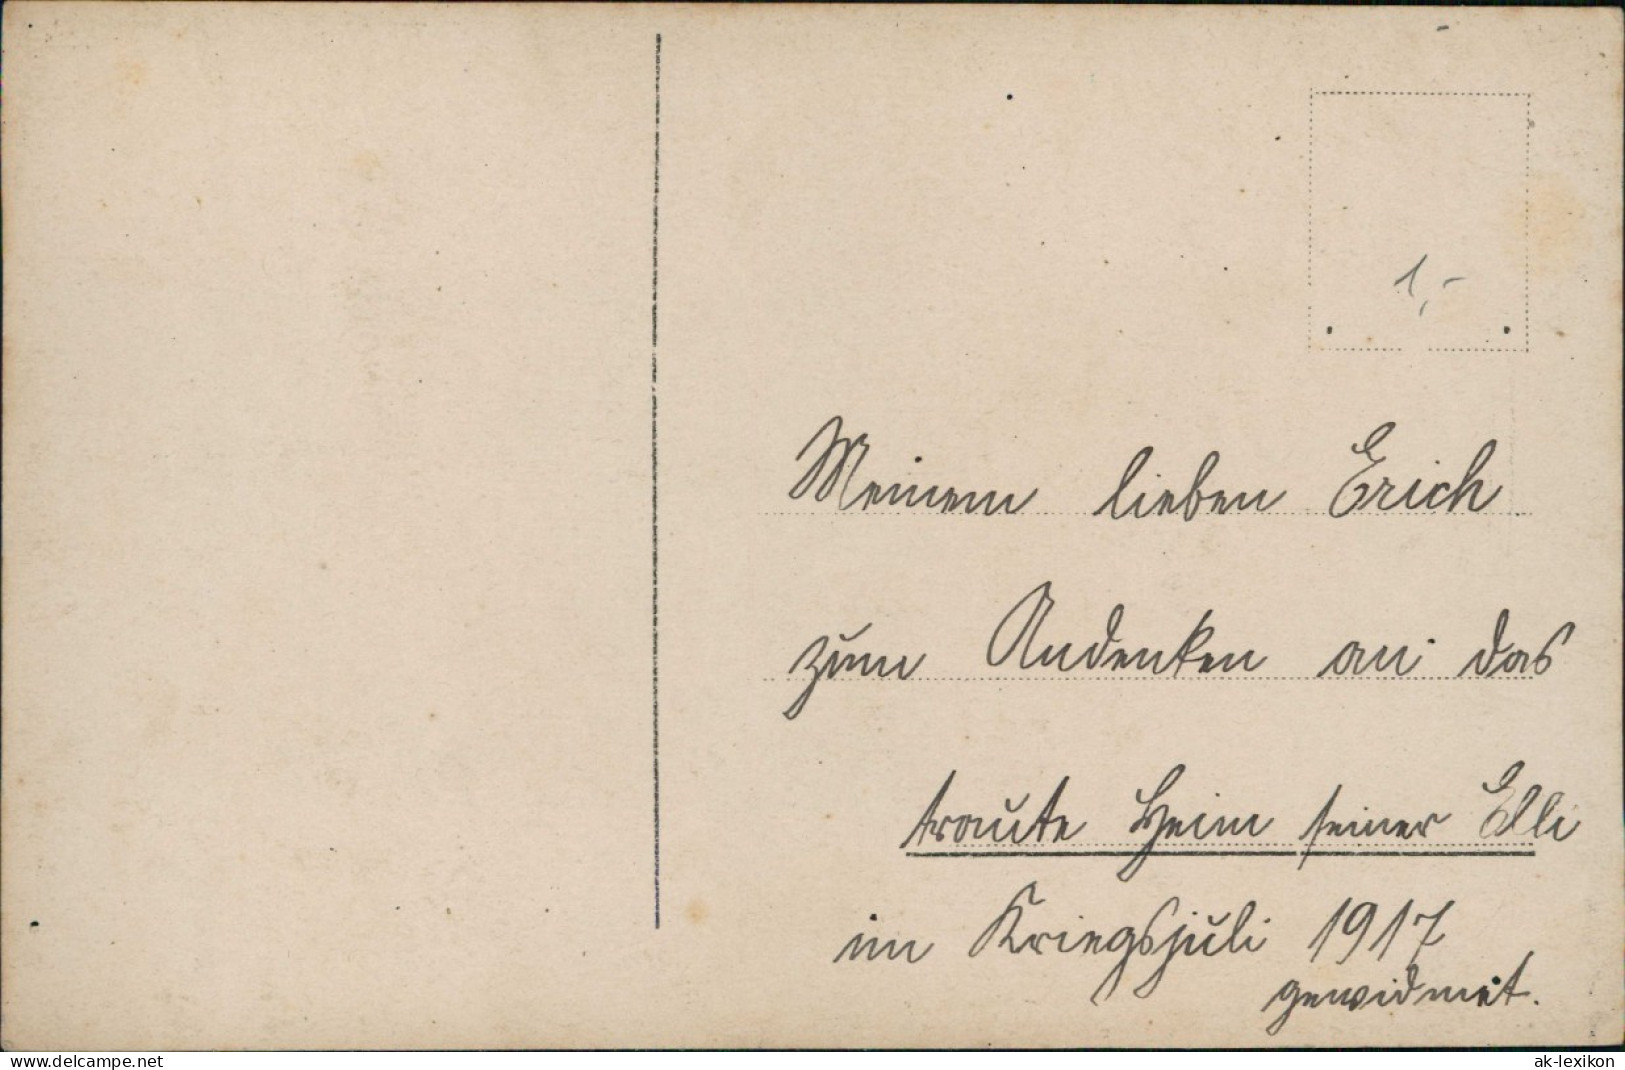 1,-
Meinem lieben Erich
zum Andenken an das
traute Heim seiner Elli
im Kriegsjuli 1917
gewidmet.
www.delcampe.net
ak-lexikon